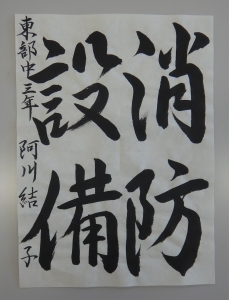 消防
設備
東部中三年 阿川結子